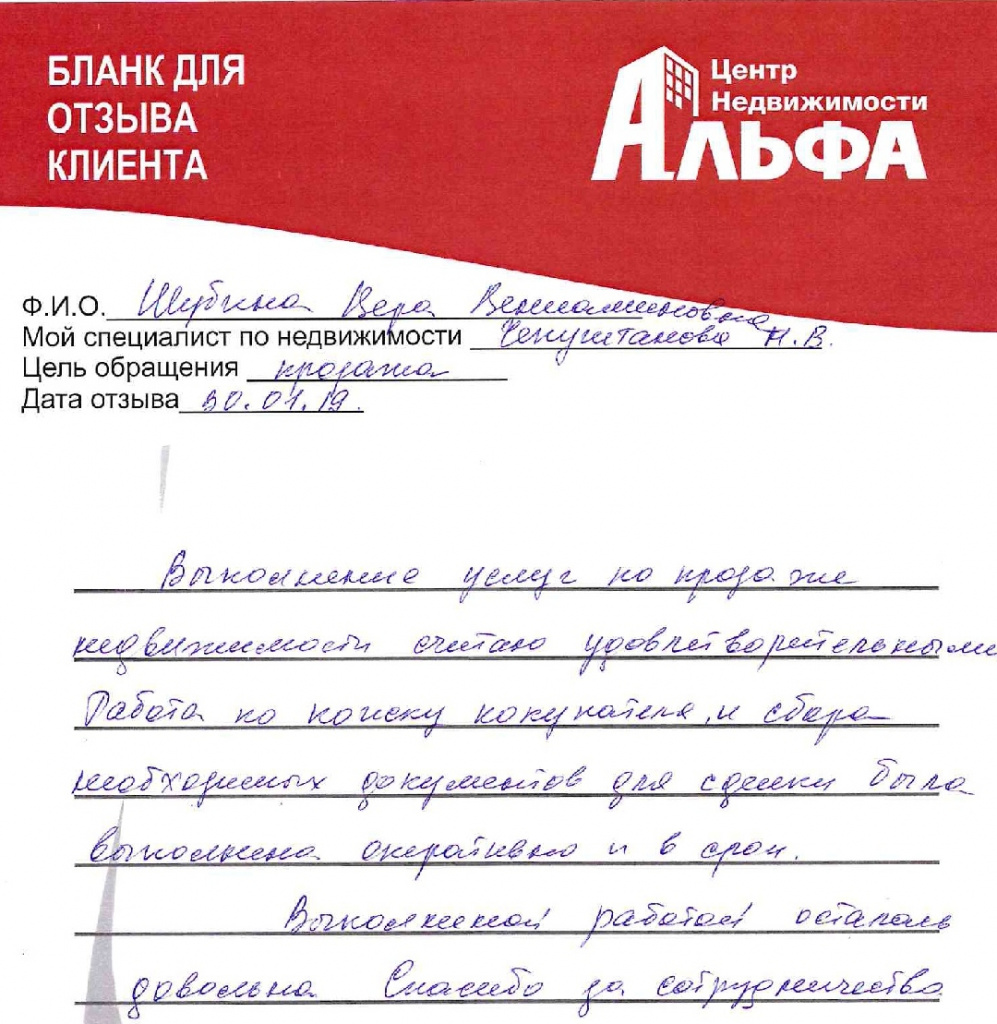 БЛАНК ДЛЯ
ОТЗЫВА
КЛИЕНТА
Центр
Недвижимости
АЛЬФА
Ф.И.О. Шубина Вера Вениаминовна
Мой специалист по недвижимости Чепуштанова Н.В.
Цель обращения продажа
Дата отзыва 30.01.19.
Выполнение услуг по продаже
недвижимости считаю удовлетворительными
Работа по поиску покупателя, и сбора
необходимых документов для сделки была
выполнена оперативно и в срок.
Выполненной работой осталась
довольна Спасибо за сотрудничество